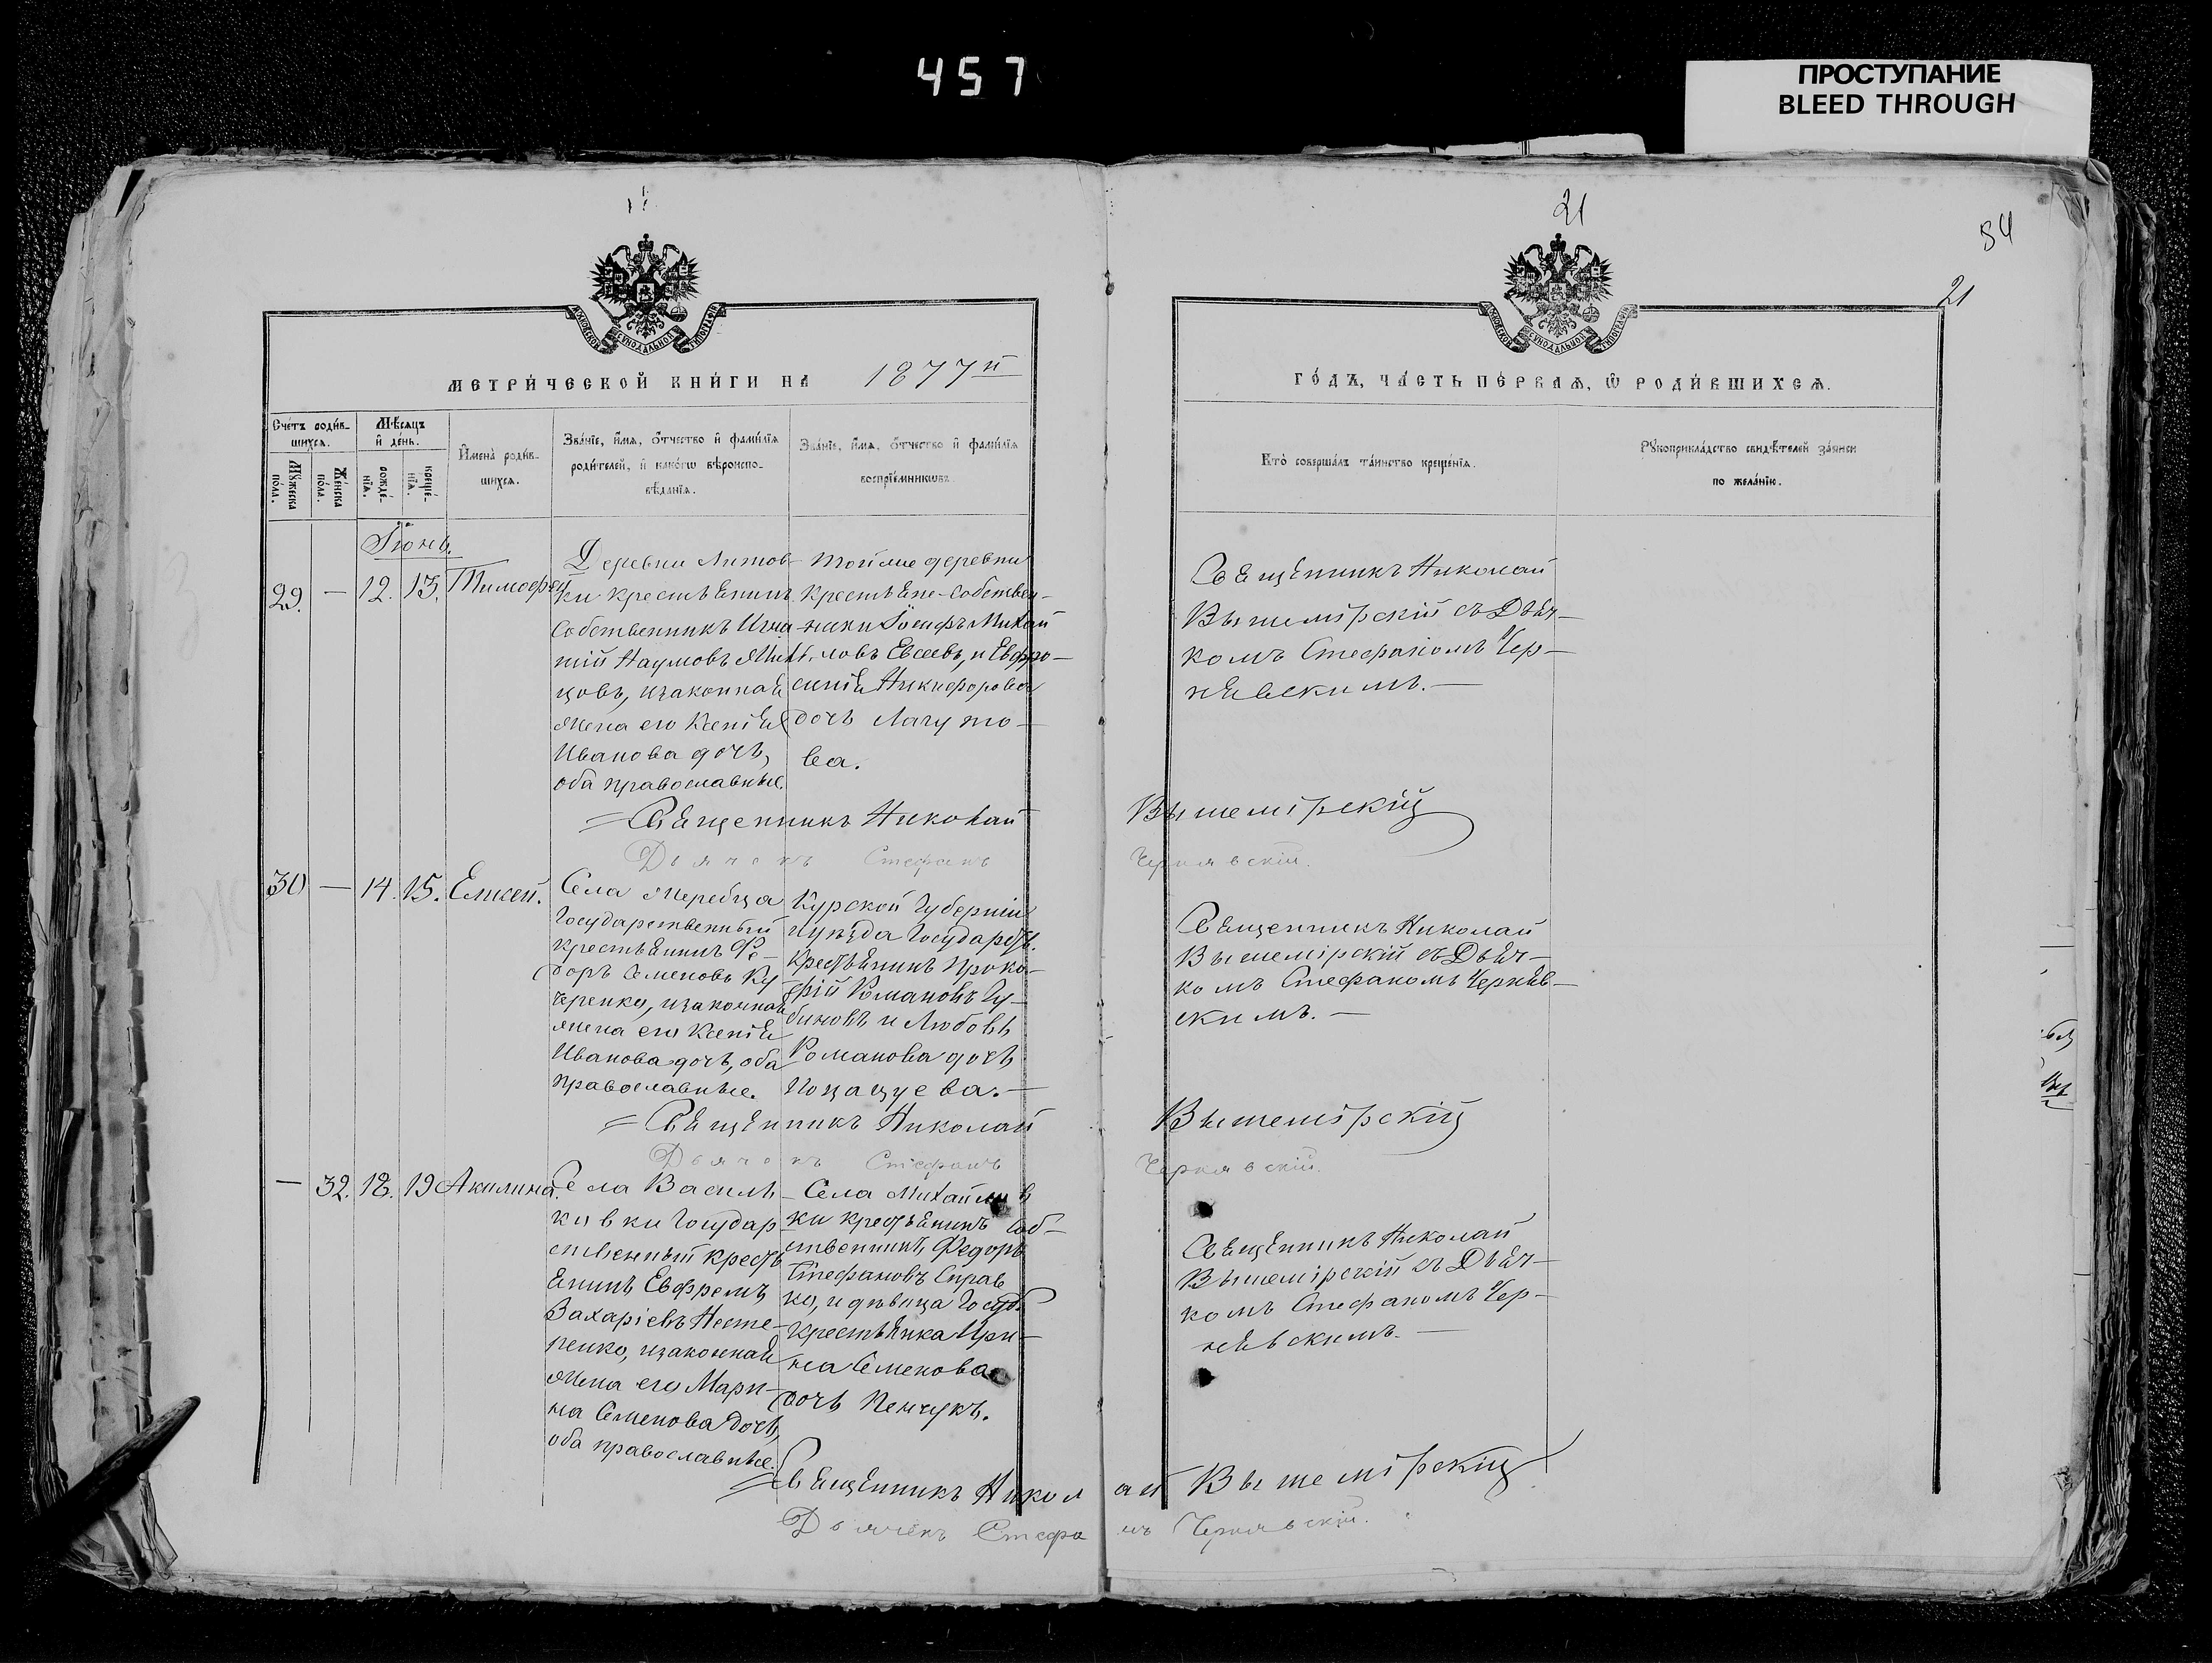 457
ПРОСТУПАНИЕ
BLEED THROUGH
21
54
21
МЕТРИ́ЧЕСКОЙ КНИ́ГИ НА 1877й
ГО́ДЪ, ЧА́СТЬ ПЕ́РВАѦ, Ѡ РОДИ́ВШИХСѦ.
Счетъ роди́в-
шихсѧ.
Мѣсяцъ
и де́нь.
Мꙋ́жеска
по́ла.
Же́нска
по́ла.
рожде́-
нїѧ.
креще́-
нїѧ.
Имена̀ роди́в-
шихсѧ.
Зва́нїе, и́мѧ, о́тчество и фами́лїѧ
роди́телей, и како́гѡ вѣроиспо-
вѣ́данїѧ.
Зва́нїе, и́мѧ, о́тчество и фами́лїѧ
воспрїе́мникѡвъ.
Кто̀ соверша́лъ та́инство креще́нїѧ.
Рꙋкоприкла́дство свидѣ́телей за́писи
по жела́нїю.
Іюнь.
29. — 12. 13. Тимофей
Деревни Литов-
ки крестьянинъ
собственникъ Игна-
тій Наумовъ
цовъ, и законная
жена его Ксенія
Иванова дочь,
оба православные.
той же деревни
крестьяне-собствен-
ники Іосифъ Михай
ловъ Евсеевъ, и Евфро-
синія Никифорова
дочь Лагуто-
ва.
Священникъ Николай
Вышемірскій съ Дьяч-
комъ Стефаномъ Чер-
нявскимъ.—
Священникъ Николай Вышемірскій
Дьячекъ Стефанъ Чернявскій.
30 — 14. 15. Елисей.
Села Жеребца
Государственный
крестьянинъ Фе-
доръ Семеновъ Ку
черенко, и законная
жена его Ксенія
Иванова дочь, оба
православные.
Курской Губерніи
и уѣзда Государств.
крестьянинъ Проко-
фій Романовъ Гу-
биновъ и Любовь
Романова дочь
Священникъ Николай
Вышемірскій съ Дьяч-
комъ Стефаномъ Черняв-
скимъ.—
Священникъ Николай Вышемірскій
Дьячекъ Стефанъ Чернявскій.
— 32. 18. 19 Акилина.
Села Василь-
ковки Государ
ственный кресть
янинъ Евфремъ
Захаріевъ Несте-
ренко, и законная
жена его Мари-
на Семенова дочь,
оба православные.
Села Михайлов
ки крестьянинъ соб-
ственникъ Федоръ
Стефановъ Справ
ка, и дѣвица Госуд.
крестьянка Ири-
на Семенова
дочь Пенчукъ.
Священникъ Николай
Вышемірскій съ Дьяч-
комъ Стефаномъ Чер-
нявскимъ.—
Священникъ Николай Вышемірскій
Дьячекъ Стефанъ Чернявскій.